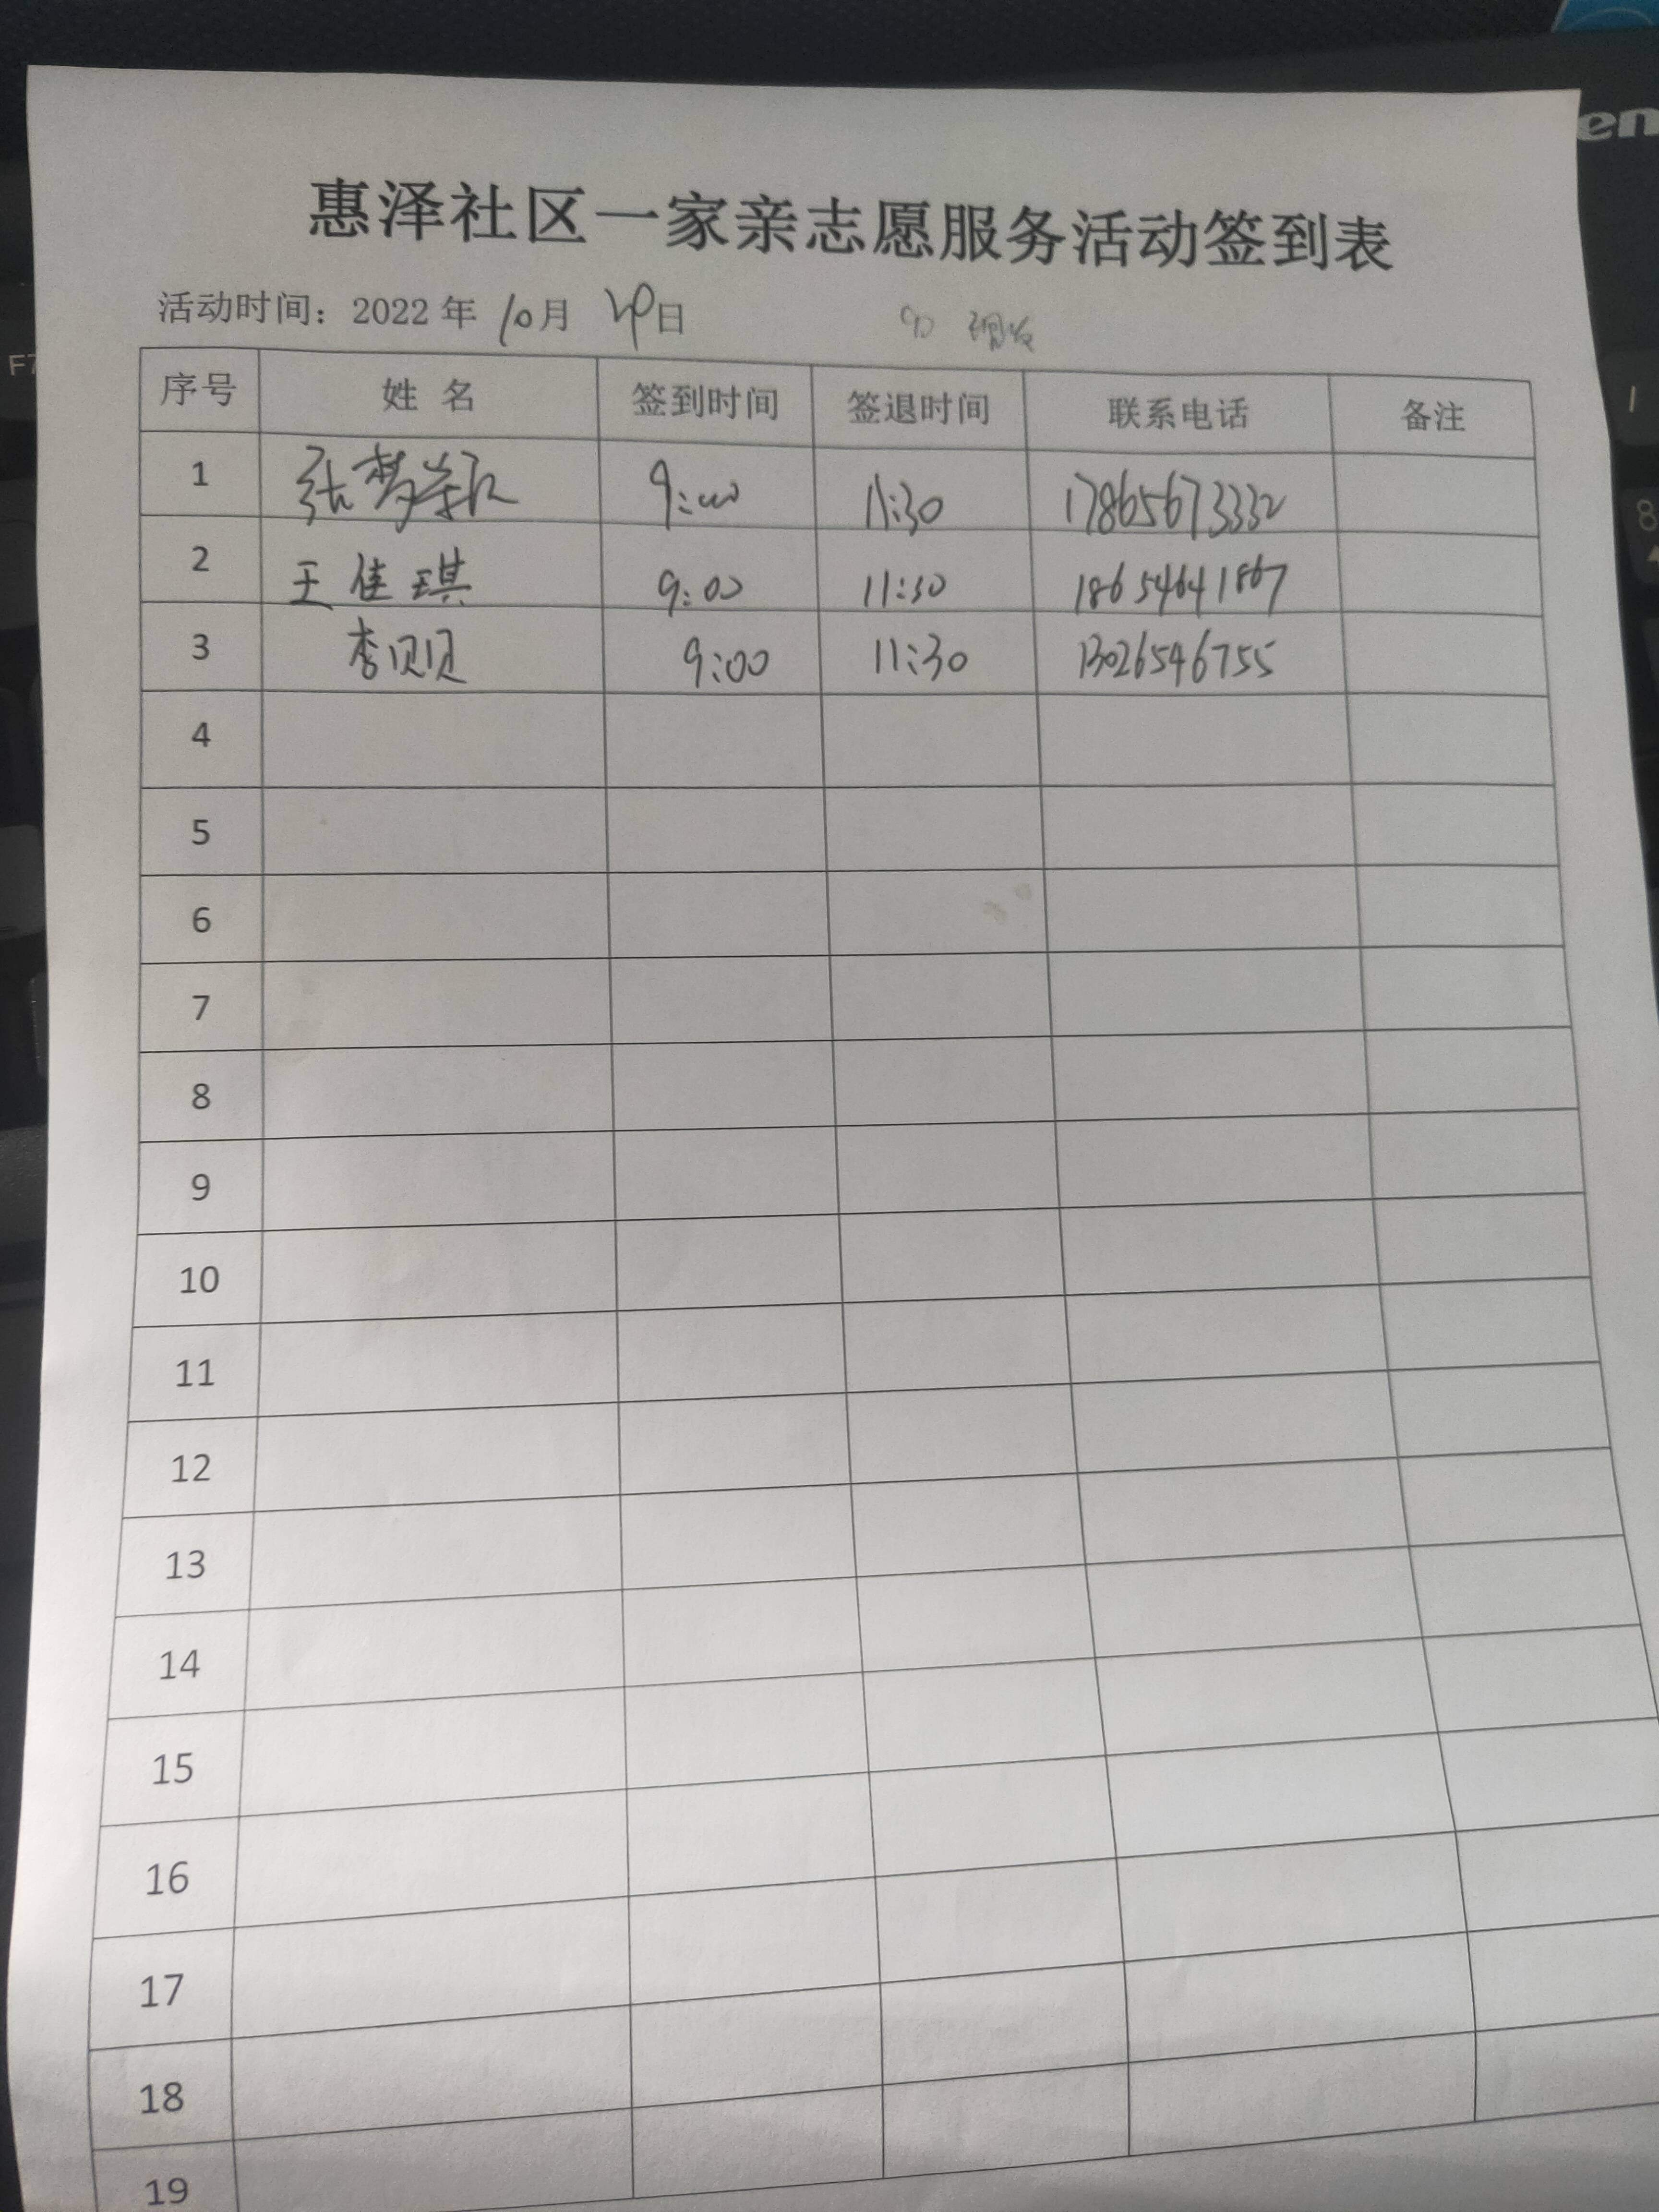 en
惠泽社区一家亲志愿服务活动签到表
活动时间：2022年 10月 29日
F7
序号 姓 名 签到时间 签退时间 联系电话 备注
1 张梦 9:00 11:30 17865673332
2 王佳琪 9:00 11:30 18654641867
3 李贝贝 9:00 11:30 13026546755
8
4
5
6
7
8
9
10
11
12
13
14
15
16
17
18
19